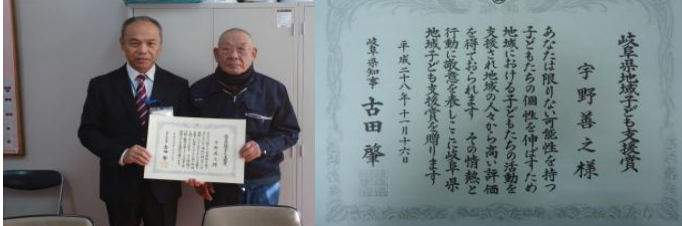 岐阜県地域子ども支援賞
宇野善之様
あなたは限りない可能性を持つ
子どもたちの個性を伸ばすため
地域における子どもたちの活動を
支援され地域の人々から高い評価
を得ておられます その情熱と
行動に敬意を表しここに岐阜県
地域子ども支援賞を贈ります
平成二十八年十一月十六日
岐阜県知事 古田肇